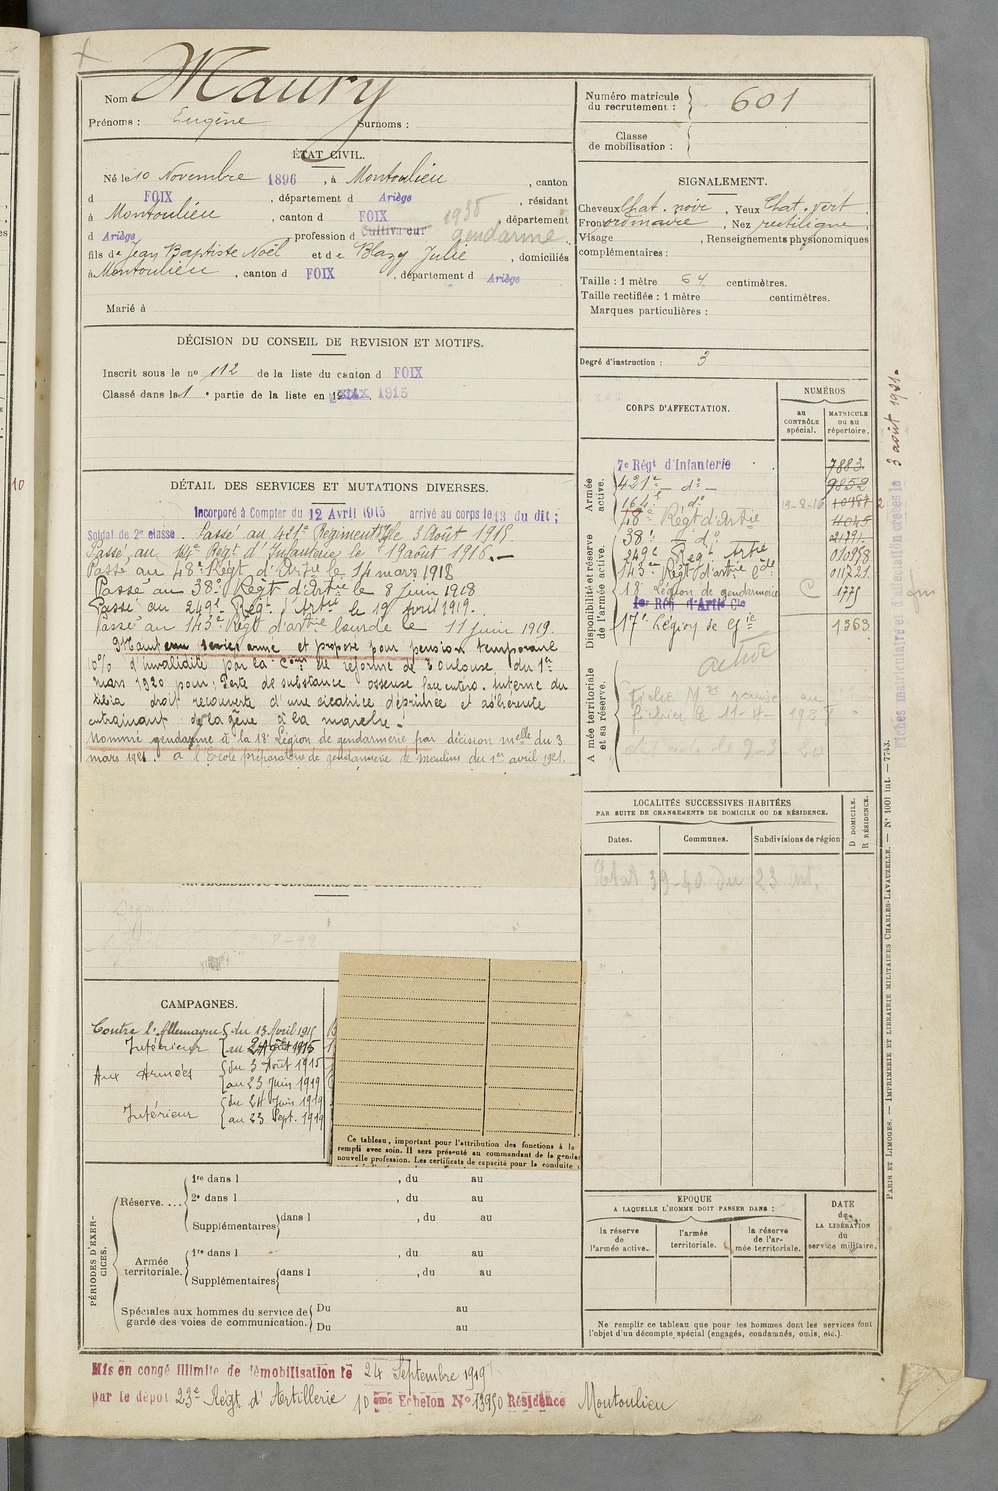 Nom Maury
Prénoms : Eugène Surnoms :
ÉTAT CIVIL.
Né le 10 Novembre 1896, à Montoulieu, canton
d FOIX, département d Ariège, résidant
à Montoulieu, canton d FOIX, département
d Ariège profession d Cultivateur 1938 gendarme
fils de Jean Baptiste Noël et de Blazy Julie, domiciliés
à Montoulieu, canton d FOIX, département d Ariège
Marié à
DÉCISION DU CONSEIL DE REVISION ET MOTIFS.
Inscrit sous le no 112 de la liste du canton d FOIX
Classé dans la 1 e partie de la liste en 1915
DÉTAIL DES SERVICES ET MUTATIONS DIVERSES.
Incorporé à Compter du 12 Avril 1915 arrivé au corps le 13 du dit ;
Soldat de 2e classe. Passé au 421e Régiment le 3 Août 1915.
Passé au 164e Régt d'Infanterie le 19 août 1916.—
Passé au 48e Régt d'Artie le 14 mars 1918
Passé au 38e Régt d'Artie le 8 Juin 1918
Passé au 249e Régt d'Artie le 19 avril 1919.
Passé au 143e Régt d'artie lourde le 11 juin 1919.
Maintenu service armé et proposé pour pension temporaire
10% d'invalidité par la Com de réforme de Toulouse du 1er
mars 1920 pour : Perte de substance osseuse face antéro-interne du
tibia droit recouverte d'une cicatrice déprimée et adhérente
entrainant de la gêne à la marche.
Nommé gendarme à la 18e Légion de gendarmerie par décision melle du 3
mars 1921. à l'Ecole préparatoire de gendarmerie de Moulins du 1er avril 1921.
CAMPAGNES.
Contre l'Allemagne du 13 Avril 1915
Intérieur au 2 Août 1915
Aux Armées du 3 Août 1915
au 23 Juin 1919
Intérieur du 24 Juin 1919
au 23 Sept. 1919
Ce tableau, important pour l'attribution des fonctions à la
rempli avec soin. Il sera présenté au commandant de la genda
nouvelle profession. Les certificats de capacité pour la conduite
PÉRIODES D'EXERCICES.
Réserve....
1re dans l , du au
2e dans l , du au
Supplémentaires dans l , du au
Armée territoriale.
1re dans l , du au
Supplémentaires dans l , du au
Spéciales aux hommes du service de garde des voies de communication.
Du au
Du au
Mis en congé illimité de démobilisation le 24 Septembre 1919
par le dépôt 23e Régt d'Artillerie 10 ème Echelon No 13950 Résidence Montoulieu
Numéro matricule du recrutement : 601
Classe de mobilisation :
SIGNALEMENT.
Cheveux Chat. noir, Yeux Chat. vert,
Front ordinaire, Nez rectiligne,
Visage , Renseignements physionomiques
complémentaires :
Taille : 1 mètre 64 centimètres.
Taille rectifiée : 1 mètre centimètres.
Marques particulières :
Degré d'instruction : 3
CORPS D'AFFECTATION.
NUMÉROS
au CONTRÔLE spécial.
MATRICULE ou au répertoire.
Armée active.
7e Régt d'Infanterie 7883
421e — do — 9852
164e do 19-8-16
48e Régt d'Artie 4045
38e — do 21791
249e Régt Artie 010958
143e Régt d'artie Lde 011721
18 Légion de gendarmerie C 1775
1er Rég d'Artie Cie
17e Légion de Gie 1363
Disponibilité et réserve de l'armée active.
Armée territoriale et sa réserve.
active
LOCALITÉS SUCCESSIVES HABITÉES
PAR SUITE DE CHANGEMENTS DE DOMICILE OU DE RÉSIDENCE.
Dates. Communes. Subdivisions de région
D DOMICILE. R RÉSIDENCE.
Etat 39-40 du 23 Art.
EPOQUE
A LAQUELLE L'HOMME DOIT PASSER DANS :
la réserve de l'armée active.
l'armée territoriale.
la réserve de l'armée territoriale.
DATE de LA LIBÉRATION du service militaire.
Ne remplir ce tableau que pour les hommes dont les services font
l'objet d'un décompte spécial (engagés, condamnés, omis, etc.).
Fiches matriculaire et d'affectation créées le 3 août 1921.
PARIS ET LIMOGES. — IMPRIMERIE ET LIBRAIRIE MILITAIRES CHARLES-LAVAUZELLE. — No 1001 int. — 7743.